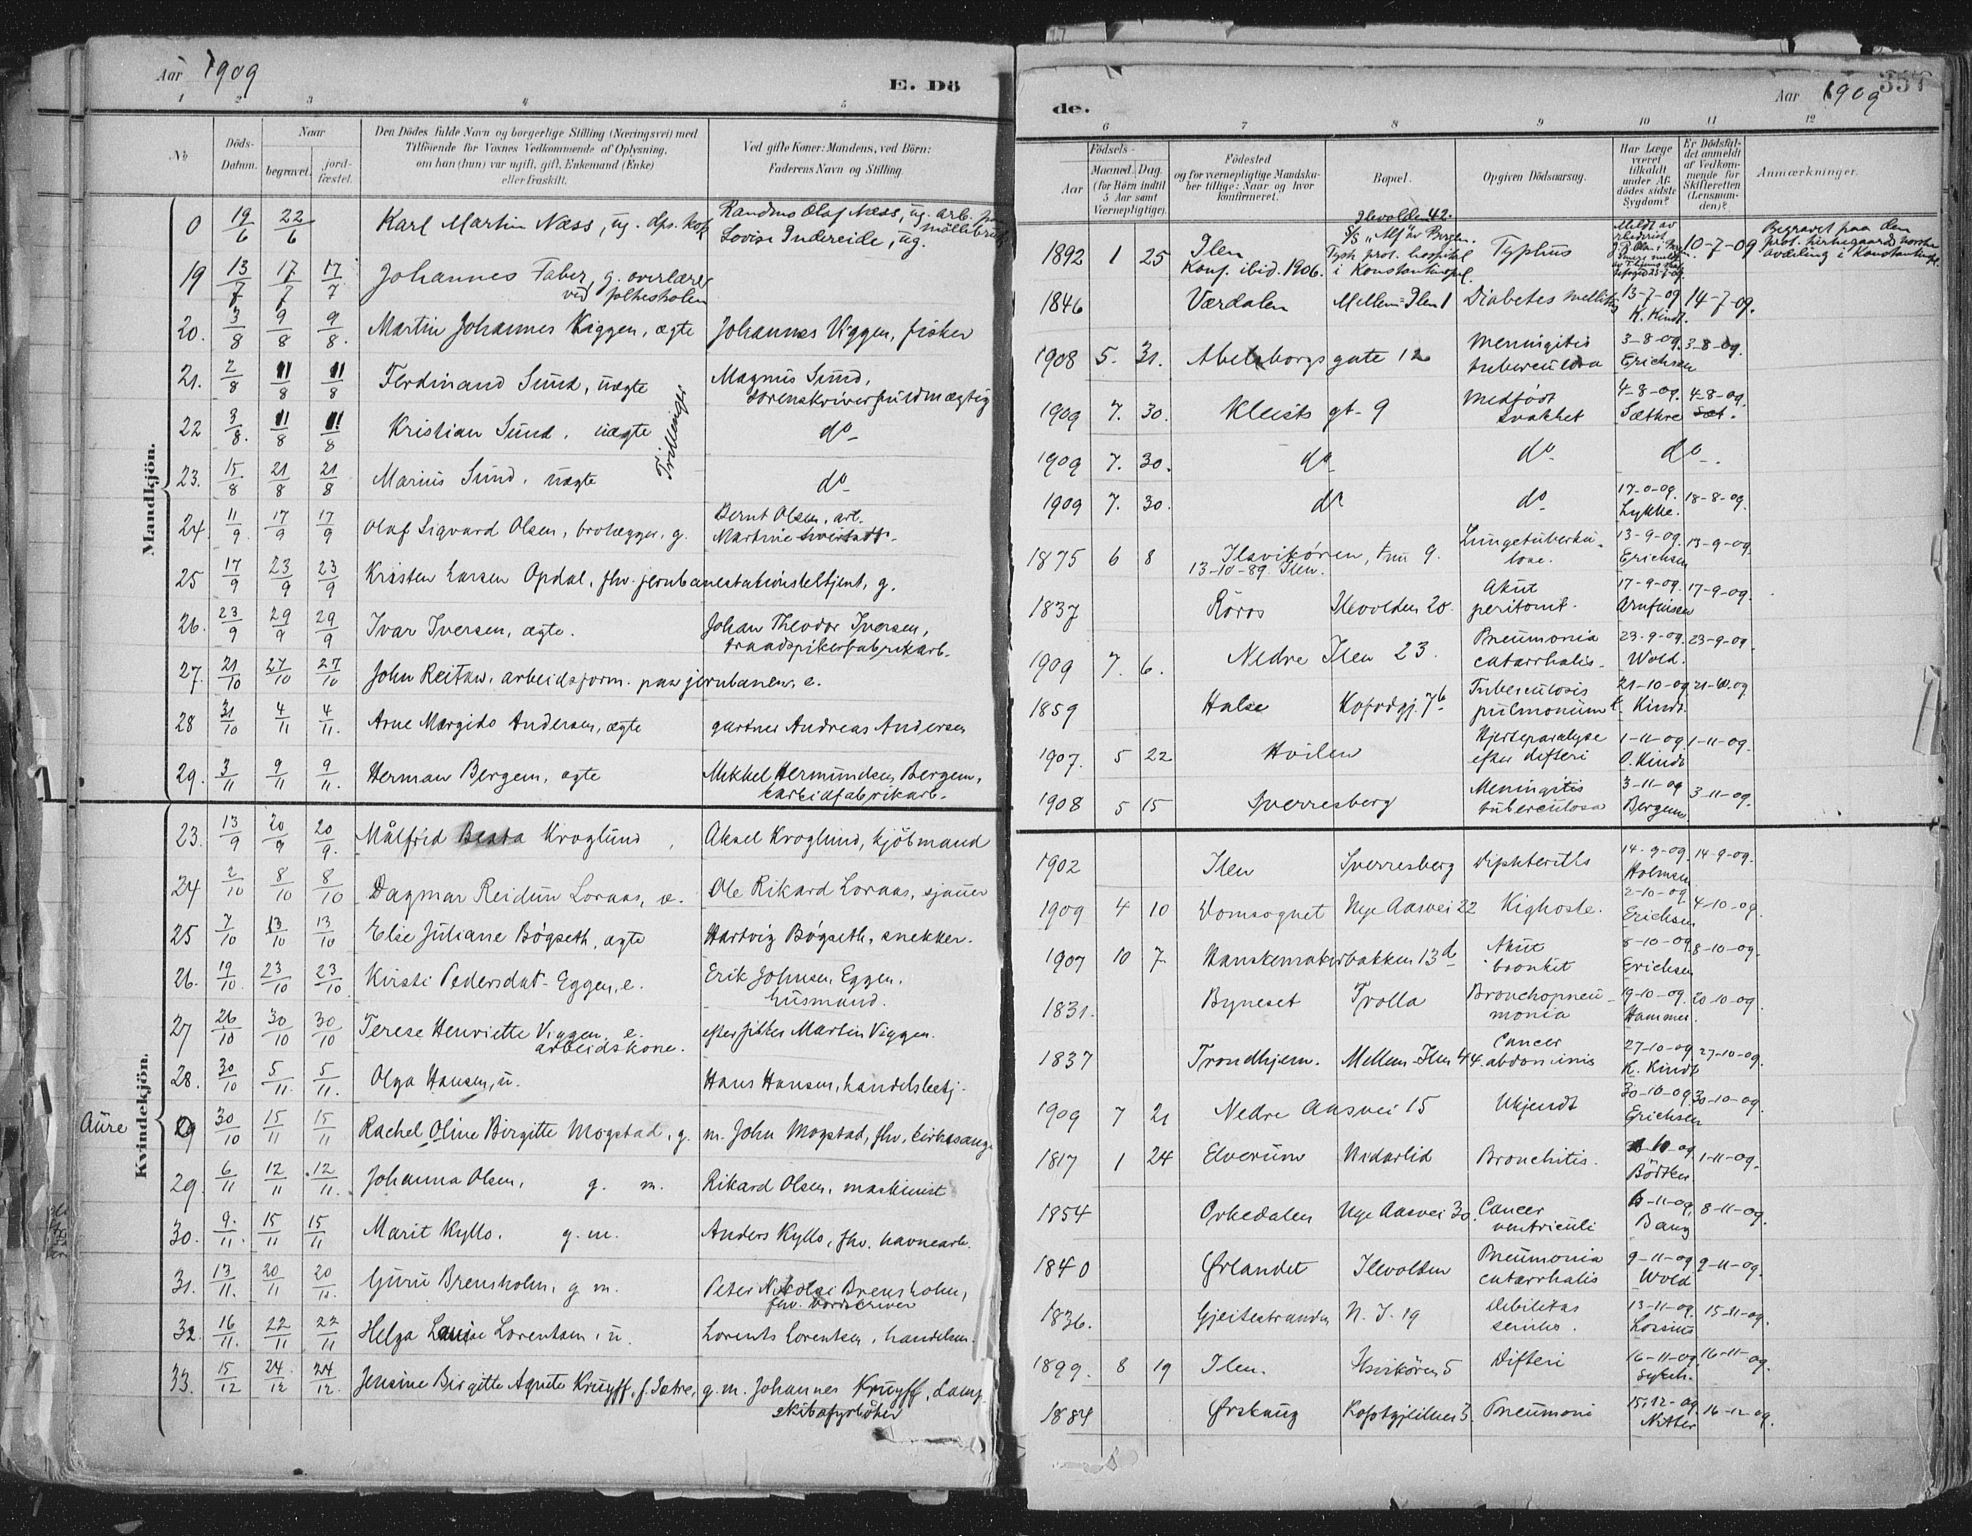 Aar 1909
E. Dö
1 2 3 4 5
No
Döds-Datum.
Naar
begravet.
jord-fæstet.
Den Dödes fulde Navn og borgerlige Stilling (Næringsvei) med
Tilföiende for Voxnes Vedkommende af Oplysning,
om han (hun) var ugift, gift, Enkemand (Enke)
eller fraskilt.
Ved gifte Koner: Mandens, ved Börn:
Faderens Navn og Stilling.
Mandkjön.
0 19/6 22/6 Karl Martin Næss, ug. Randius Olaf Næss, ug. arb.
Lovise Indereide, ug.
19 13/7 17/7 17/7 Johannes Faber, g. overlærer
ved folkeskolen
20. 3/8 9/8 9/8. Martin Johannes Viggen, ægte Johannes Viggen, fisker
21. 2/8 11/8 11/8 Ferdinand Sund, uægte Magnus Sund,
sorenskriverfuldmægtig
22 3/8. 11/8 11/8 Kristian Sund, uægte do
23. 15/8 21/8 21/8 Marius Sund, uægte do
Trillinger
24. 11/9. 17/9 17/9 Olaf Sigvard Olsen, brolægger, g. Bernt Olsen, arb.
Martine
25 17/9 23/9 23/9 Kristen Larsen Opdal, fhv. jernbanestationsbetjent, g.
26. 23/9 29/9 29/9 Ivar Iversen, ægte. Johan Theodor Iversen,
traadspikerfabrikarb.
27. 21/10 27/10 27/10 John Reitan, arbeidsform. paa jernbanen, e.
28 31/10 4/11 4/11. Arne Margido Andersen, ægte gartner Andreas Andersen
29. 3/11 9/11 9/11. Herman Bergem, ægte Mikkel Hermundsen Bergem,
carbidfabrikarb.
Kvindekjön.
23. 13/9 20/9 20/9. Målfrid Beata Kroglund, Aksel Kroglund, kjöbmand
24 2/10 8/10 8/10 Dagmar Reidun Loraas, æ. Ole Rikard Loraas, sjauer
25 7/10 13/10 13/10 Else Juliane Bögseth, ægte Hartvig Bögseth, snekker.
26. 19/10 23/10 23/10 Kirsti Pedersdat. Eggen, e. Erik Johnsen Eggen,
husmand.
27 26/10 30/10 30/10 Terese Henriette Viggen, e. efter fisker Martin Viggen.
arbeidskone.
28. 30/10 5/11. 5/11. Olga Hansen, u. Hans Hansen, handelsbetj.
Aure 30/10 15/11 15/11 Rachel Oline Birgitte Mogstad, g. m. John Mogstad, fhv. kirkesang
29. 6/11 12/11 12/11. Johanna Olsen, g. m. Rikard Olsen, maskinist
30. 9./11. 15/11 15/11 Marit Kyllo, g. m. Anders Kyllo, fhv. havnearb.
31. 13/11. 20/11 20/11. Guru Brensholm, g m. Peter Nikolai Brensholm,
fhv.
32 16/11. 22/11 22/11 Helga Louise Lorentsen, u. Lorents Lorentsen, handelsm.
33. 15/12 24./12 24/12. Jensine Birgitte Agnete Kruyff, f. Sætre, g. m. Johannes Kruyff, Damp
skibsfyrböter
de.
Aar 1909
337
6 7 8 9 10 11 12
Födsels-
Aar
Maaned. Dag.
(for Börn indtil
5 Aar samt
Værnepligtige).
Födested
og for værnepligtige Mandska-
ber tillige: Naar og hvor
konfirmeret.
Bopæl.
Opgiven Dödsaarsag.
Har Læge
været
tilkaldt
under Af-
dödes sidste
Sygdom?
Er Dödsfal-
det anmeldt
af Vedkom-
mende for
Skifteretten
(Lensman-
den)?
Anmærkninger.
Ilevolden 42.
S/S "Alf" av Bergen.
1892 1 25 Ilen Tysk prot. hospital Typhus 10-7-09
Konf. ibid. 1906. i Konstantinopel.
Begravet paa den
prot. kirkegaards norske
avdeling i Konstantinopel.
1846 Værdalen Mellem-Ilen 1 Diabetes mellitus 13-7-09 K. Kindt. 14-7-09.
1908 5. 31. Abelsborgs gate 12 Meningitis tuberculosa 3-8-09. Erichsen 3-8-09.
1909 7. 30. Kleists gt. 9 Medfödt svakhet 4-8-09. Sæthre 4-8-09.
1909 7. 30. do do do
1909 7. 30 do do Lykke. 18-8-09.
1875 6 8 Ilsvikören, 9. Lungetuberku-
lose. 13-9-09. Erichsen 13-9-09.
13-10-89. Ilen.
1837 Röros Ilevolden 20. Akut peritonit. 17-9-09. Arnfinsen 17-9-09.
1909 7. 6. Nedre Ilen 23. Pneumonia catarrhalis. 23-9-09. Wold. 23-9-09.
1859 Halse Kofodgj. 7b Tuberculosis pulmonium 21-10-09 K. Kindt. 21-10-09
1907. 5 22 Hvilen Hjerteparalyse efter difteri 1-11-09. O. Kindt 1-11-09.
1908 5 15 Sverresberg Meningitis tuberculosa 3-11-09 3-11-09.
1902 Ilen Sverresberg Diphteritis 14-9-09. Holmsen 14-9-09.
1909 4 10 Domsognet Nye Aasvei 22 Kighoste. 2-10-09. Erichsen 4-10-09.
1907 10 7 Hanskemakerbakken 13d Akut bronkit 8-10-09 Erichsen 8-10-09.
1831. Byneset Trolla Bronchopneu-
monia 19-10-09. Hammer. 20-10-09.
1837 Trondhjem. Mellem-Ilen 44. Cancer abdominis 27-10-09 K. Kindt 27-10-09.
1909 7 21 Nedre Aasvei 15 Ukjendt 30-10-09. Erichsen 30-10-09.
1817 1 24 Elverum Nidarlid Bronchitis. Bödtker 1-11-09.
1854 Orkedalen Nye Aasvei 30. Cancer ventriculi 6-11-09, Bang 8-11-09.
1840 Ørlandet Ilevolden Pneumonia catarrhalis 9-11-09 Wold 9-11-09.
1836. Gjeitestranden N. I. 19 Debilitas senilis. 13-11-09. Lossius 15-11-09.
1899. 8 19 Ilen. Ilsvikören 5 Difteri 16-11-09. 16-11-09.
1884 Ørskaug Pneumoni 15.12-09. 16-12-09.